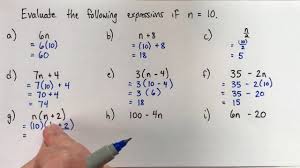 Evaluate the following expressions if n = 10.
a) 6n
= 6(10)
= 60
b) n + 8
= (10) + 8
= 18
c) n/2
= (10)/2
= 5
d) 7n + 4
= 7(10) + 4
= 70 + 4
= 74
e) 3(n - 4)
= 3(10 - 4)
= 3(6)
= 18
f) 35 - 2n
= 35 - 2(10)
= 35 - 20
= 15
g) n(n + 2)
= (10)( + 2)
=
h) 100 - 4n
i) 6n - 20